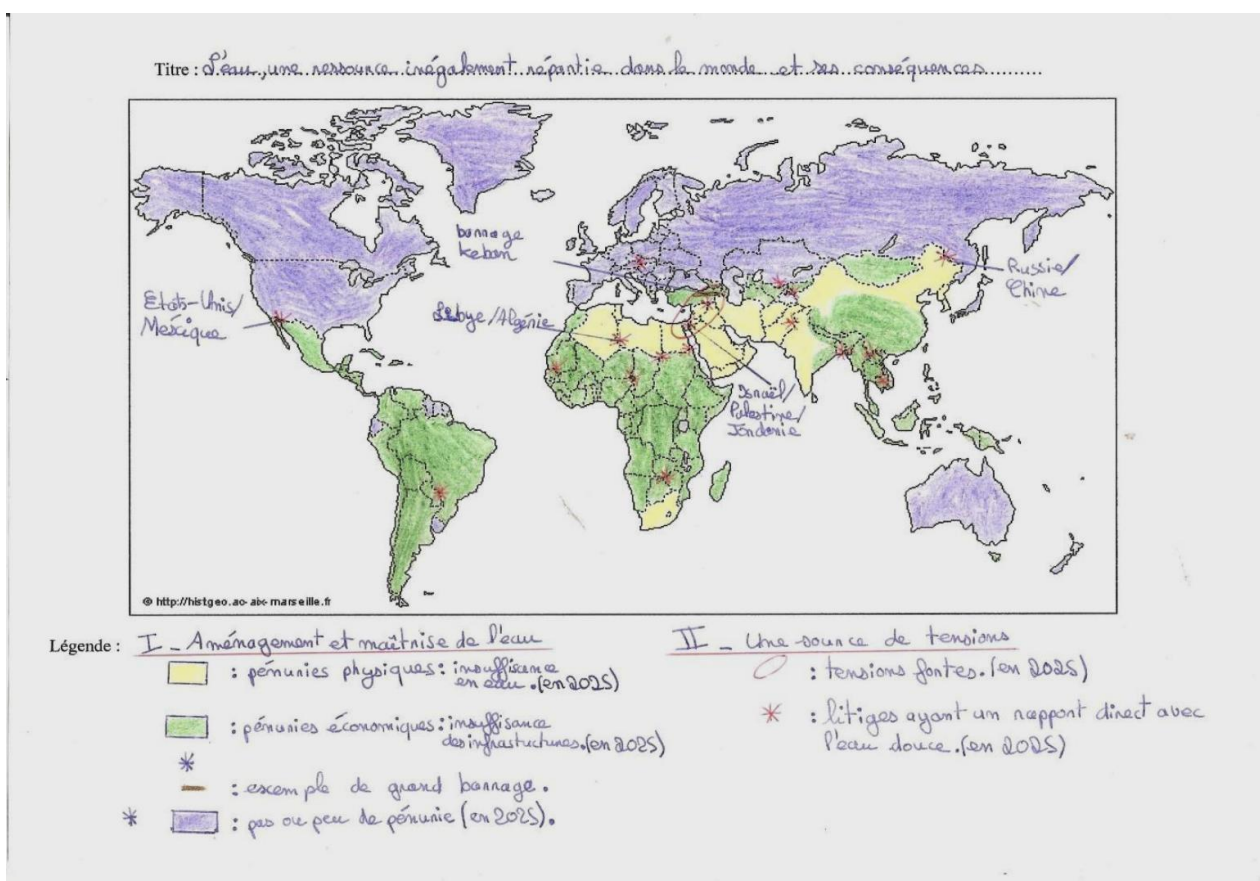 Titre : L'eau, une ressource inégalement répartie dans le monde et ses conséquences
barrage
Keban
Russie/
Chine
Etats-Unis/
Mexique
Libye/Algérie
Israël/
Palestine/
Jordanie
© http://histgeo.ac-aix-marseille.fr
Légende : I - Aménagement et maîtrise de l'eau
: pénuries physiques : insuffisance
en eau. (en 2025)
: pénuries économiques : insuffisance
des infrastuctures. (en 2025)
: exemple de grand barrage.
: pas ou peu de pénurie (en 2025).
II - Une source de tensions
: tensions fortes. (en 2025)
: litiges ayant un rapport direct avec
l'eau douce. (en 2025)